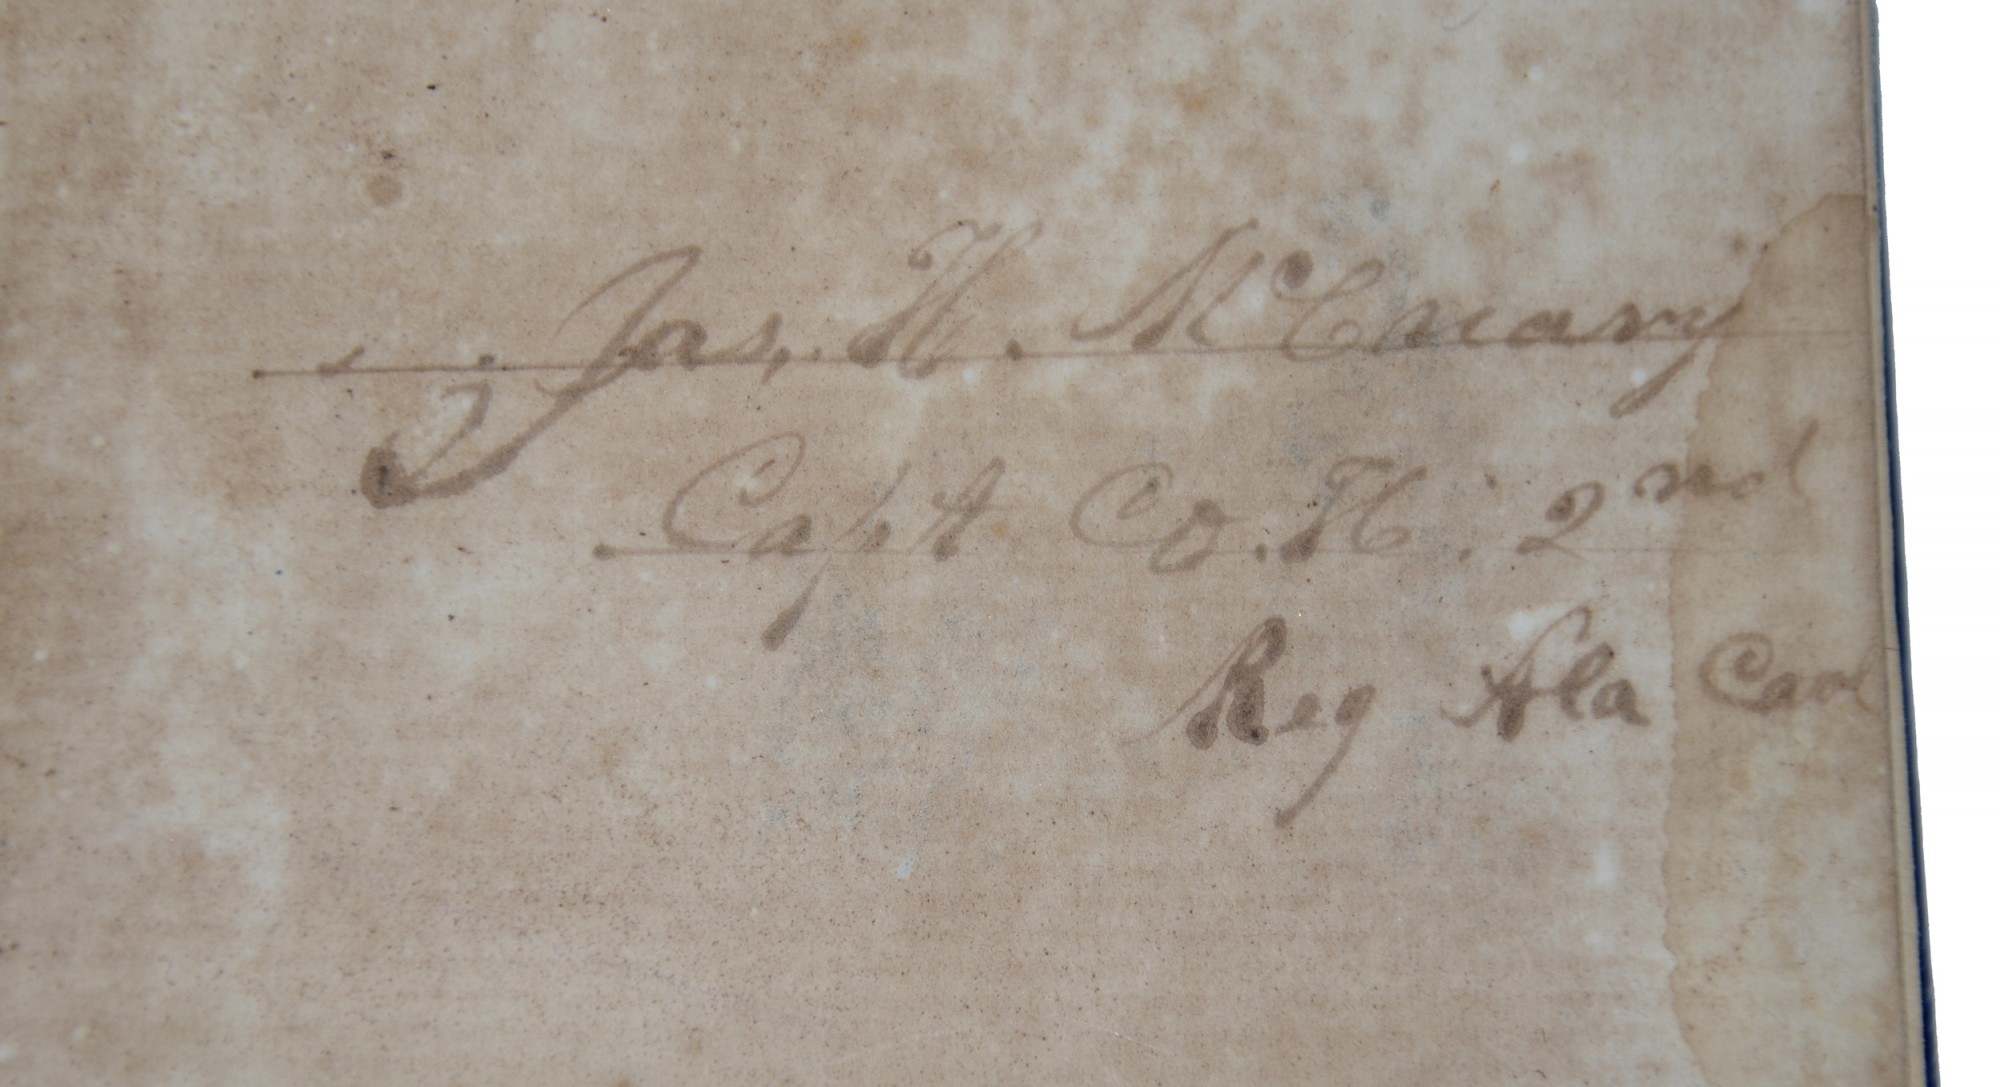 Jas. W. McCreary
Capt Co. H. 2nd
Reg Ala Cav